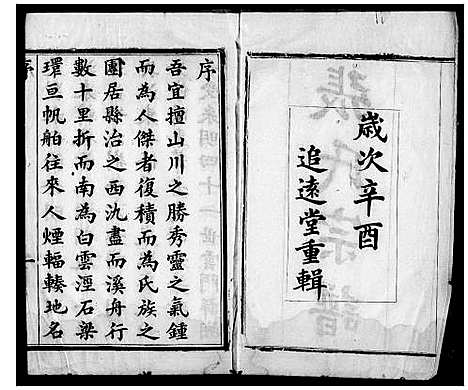 歲次辛酉
追遠堂重輯
序
吾宜擅山川之勝秀靈之氣鍾
而為人傑者復積而為氏族之
團居縣治之西氿盡而溪舟行
數十里折而南為白雲涇石梁
環亘帆舶往來人煙輻輳地名